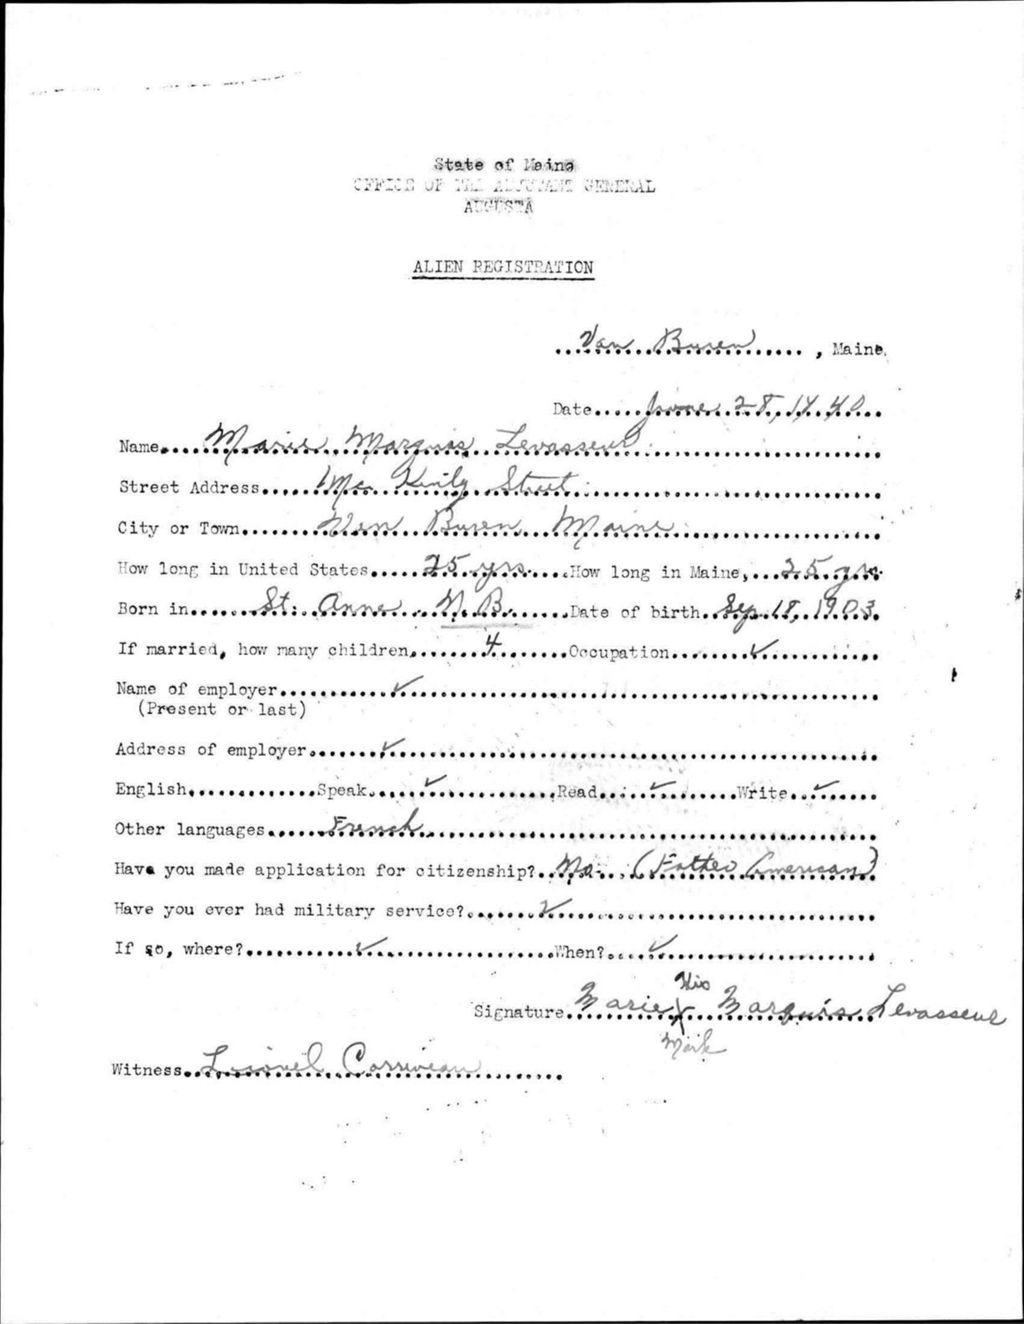 State of Maine
OFFICE OF THE ADJUTANT GENERAL
AUGUSTA
ALIEN REGISTRATION
Van Buren, Maine
Date June 28, 1940
Name Marie Marquis Levasseur
Street Address Mc Kinly Street
City or Town Van Buren Maine
How long in United States 25 yrs. How long in Maine, 25 yrs.
Born in St. Anne N.B. Date of birth Sep 18, 1903
If married, how many children 4 Occupation ✓
Name of employer ✓
(Present or last)
Address of employer ✓
English Speak ✓ Read ✓ Write ✓
Other languages French
Have you made application for citizenship? No (Father American)
Have you ever had military service? ✓
If so, where? ✓ When? ✓
His
Signature Marie X Marquis Levasseur
Mark
Witness Lionel Corriveau